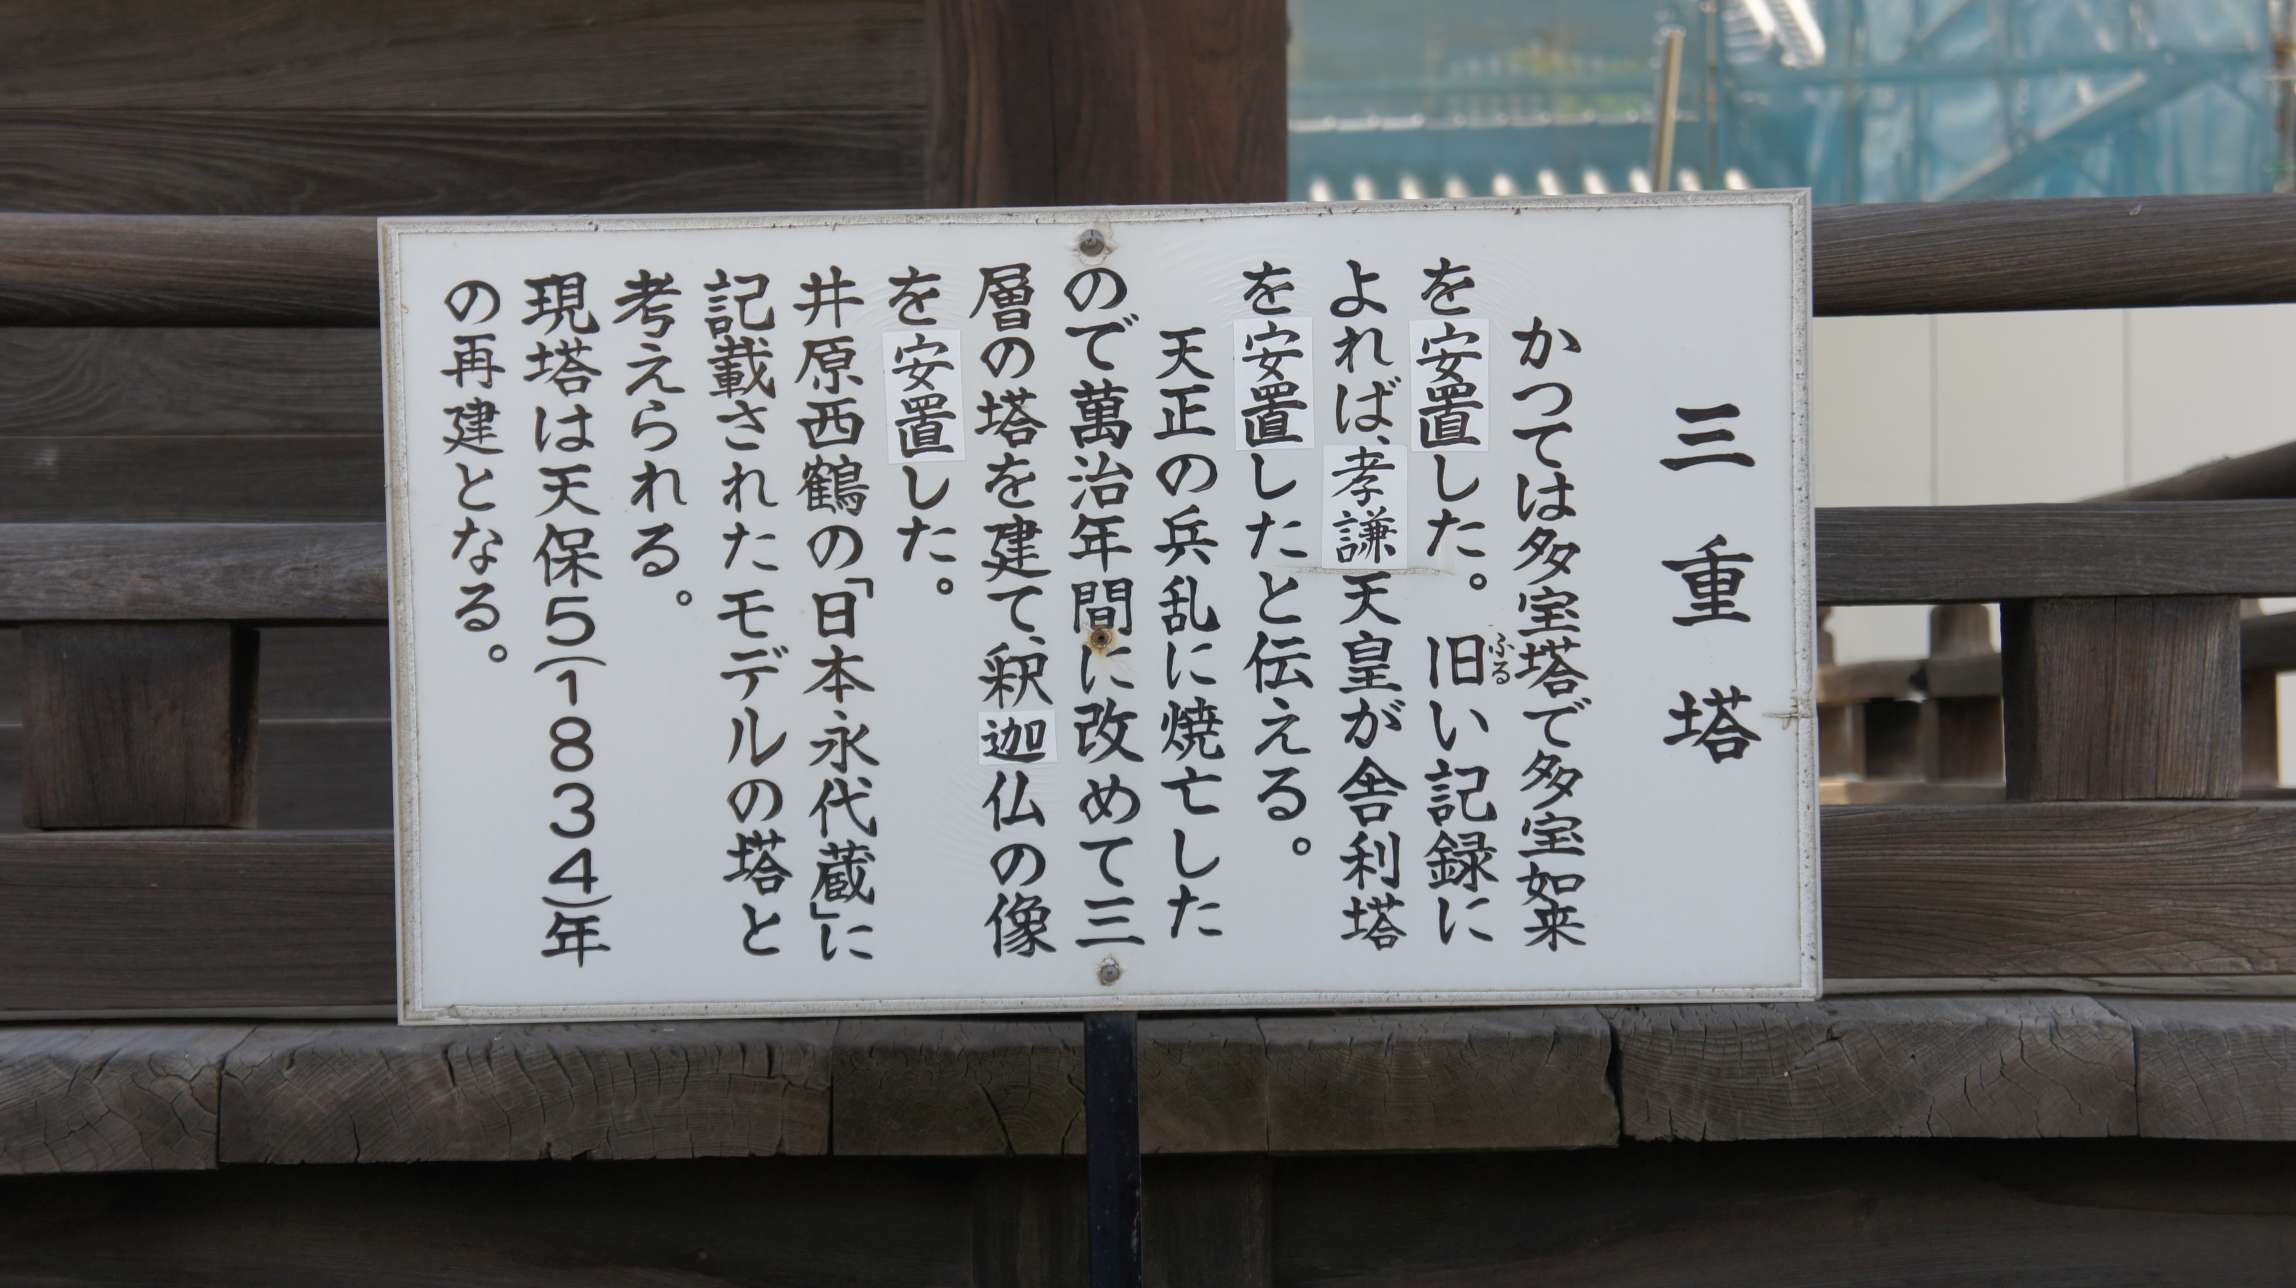 三重塔
かつては多宝塔で多宝如来
を安置した。旧い記録に
ふる
よれば、孝謙天皇が舎利塔
を安置したと伝える。
天正の兵乱に焼亡した
ので萬治年間に改めて三
層の塔を建て、釈迦仏の像
を安置した。
井原西鶴の「日本永代蔵」に
記載されたモデルの塔と
考えられる。
現塔は天保5(1834)年
の再建となる。